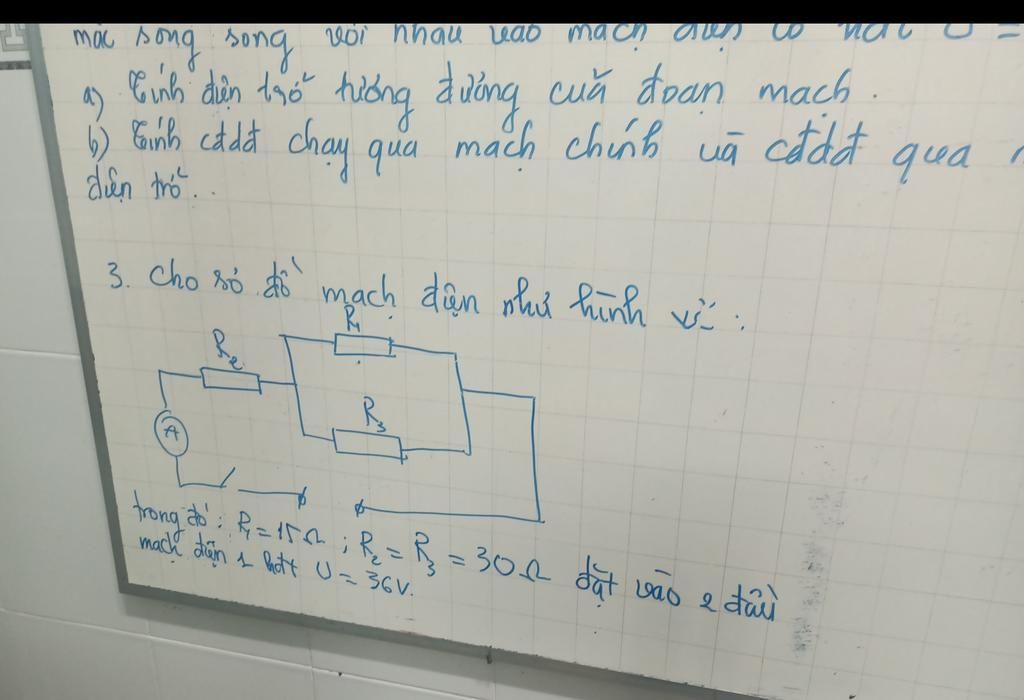 mắc song song với nhau vào mạch điện có hđt U =
a) Tính điện trở tương đương của đoạn mạch.
b) Tính cđdđ chạy qua mạch chính và cđdđ qua
điện trở...
3. Cho sơ đồ mạch điện như hình vẽ:
R₁
R₂
R₃
A
trong đó: R₁ = 15Ω ; R₂ = R₃ = 30Ω đặt vào 2 đầu
mạch điện 1 hđt U = 36V.